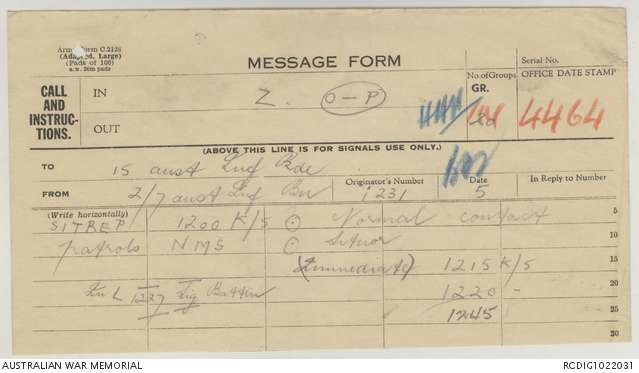 Army Form C.2128
(Adapted, Large)
(Pads of 100)
MESSAGE FORM
Serial No.
CALL AND INSTRUCTIONS.
IN
Z. O-P
No. of Groups
GR.
OFFICE DATE STAMP
4464
OUT
(ABOVE THIS LINE IS FOR SIGNALS USE ONLY.)
TO
15 aust Inf Bde
FROM
2/7 aust Inf Bn
Originator's Number
1231
Date
5
In Reply to Number
(Write horizontally)
SITREP 1200 K/5 ⊙ Normal contact
5
patrols NMS ⊙
10
(Immediate) 1215 K/5
15
1237 Sig
1220 -
20
1245
25
30
AUSTRALIAN WAR MEMORIAL
RCDIG1022031